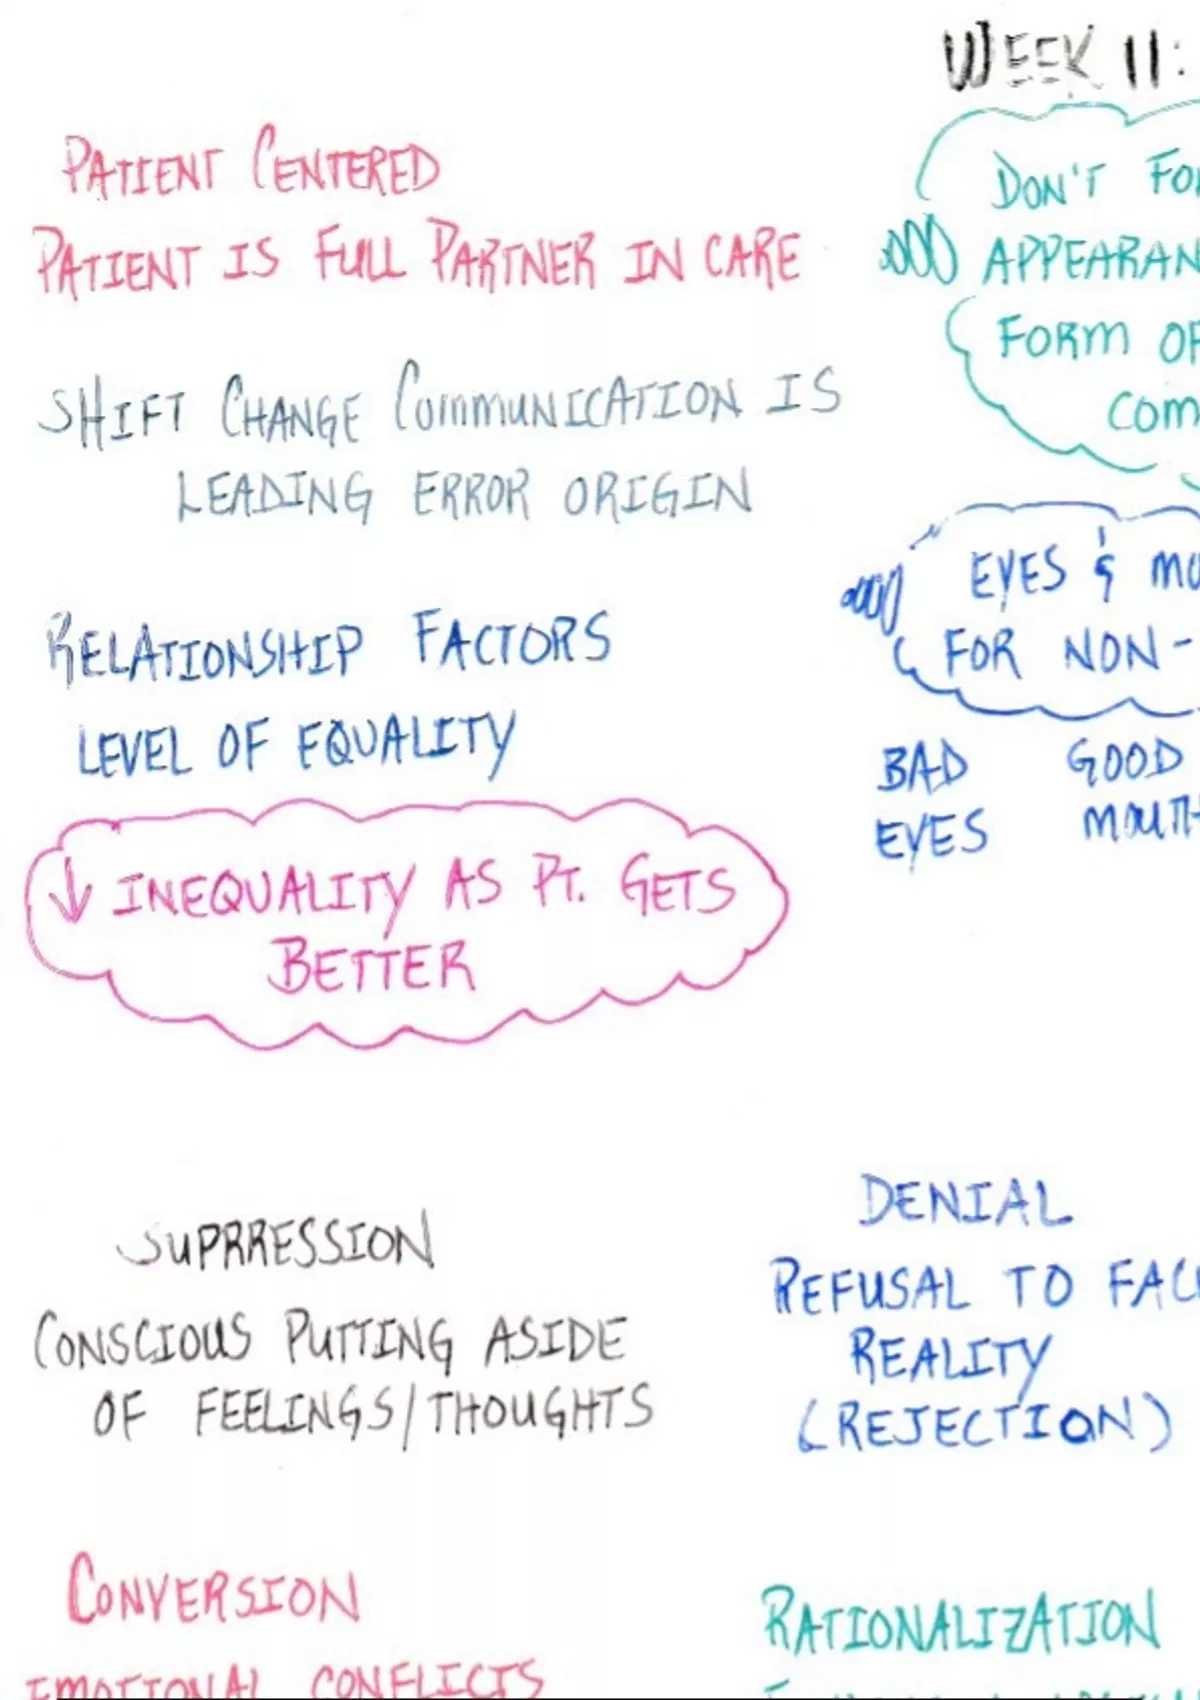 WEEK 11:
PATIENT CENTERED
PATIENT IS FULL PARTNER IN CARE
SHIFT CHANGE COMMUNICATION IS
LEADING ERROR ORIGIN
RELATIONSHIP FACTORS
LEVEL OF EQUALITY
↓ INEQUALITY AS PT. GETS
BETTER
DON'T
FORM
EYES &
FOR NON-
BAD GOOD
EYES
SUPRRESSION
CONSCIOUS PUTTING ASIDE
OF FEELINGS/THOUGHTS
DENIAL
REFUSAL TO
REALITY
(REJECTION)
CONVERSION
EMOTIONAL CONFLICTS
RATIONALIZATION